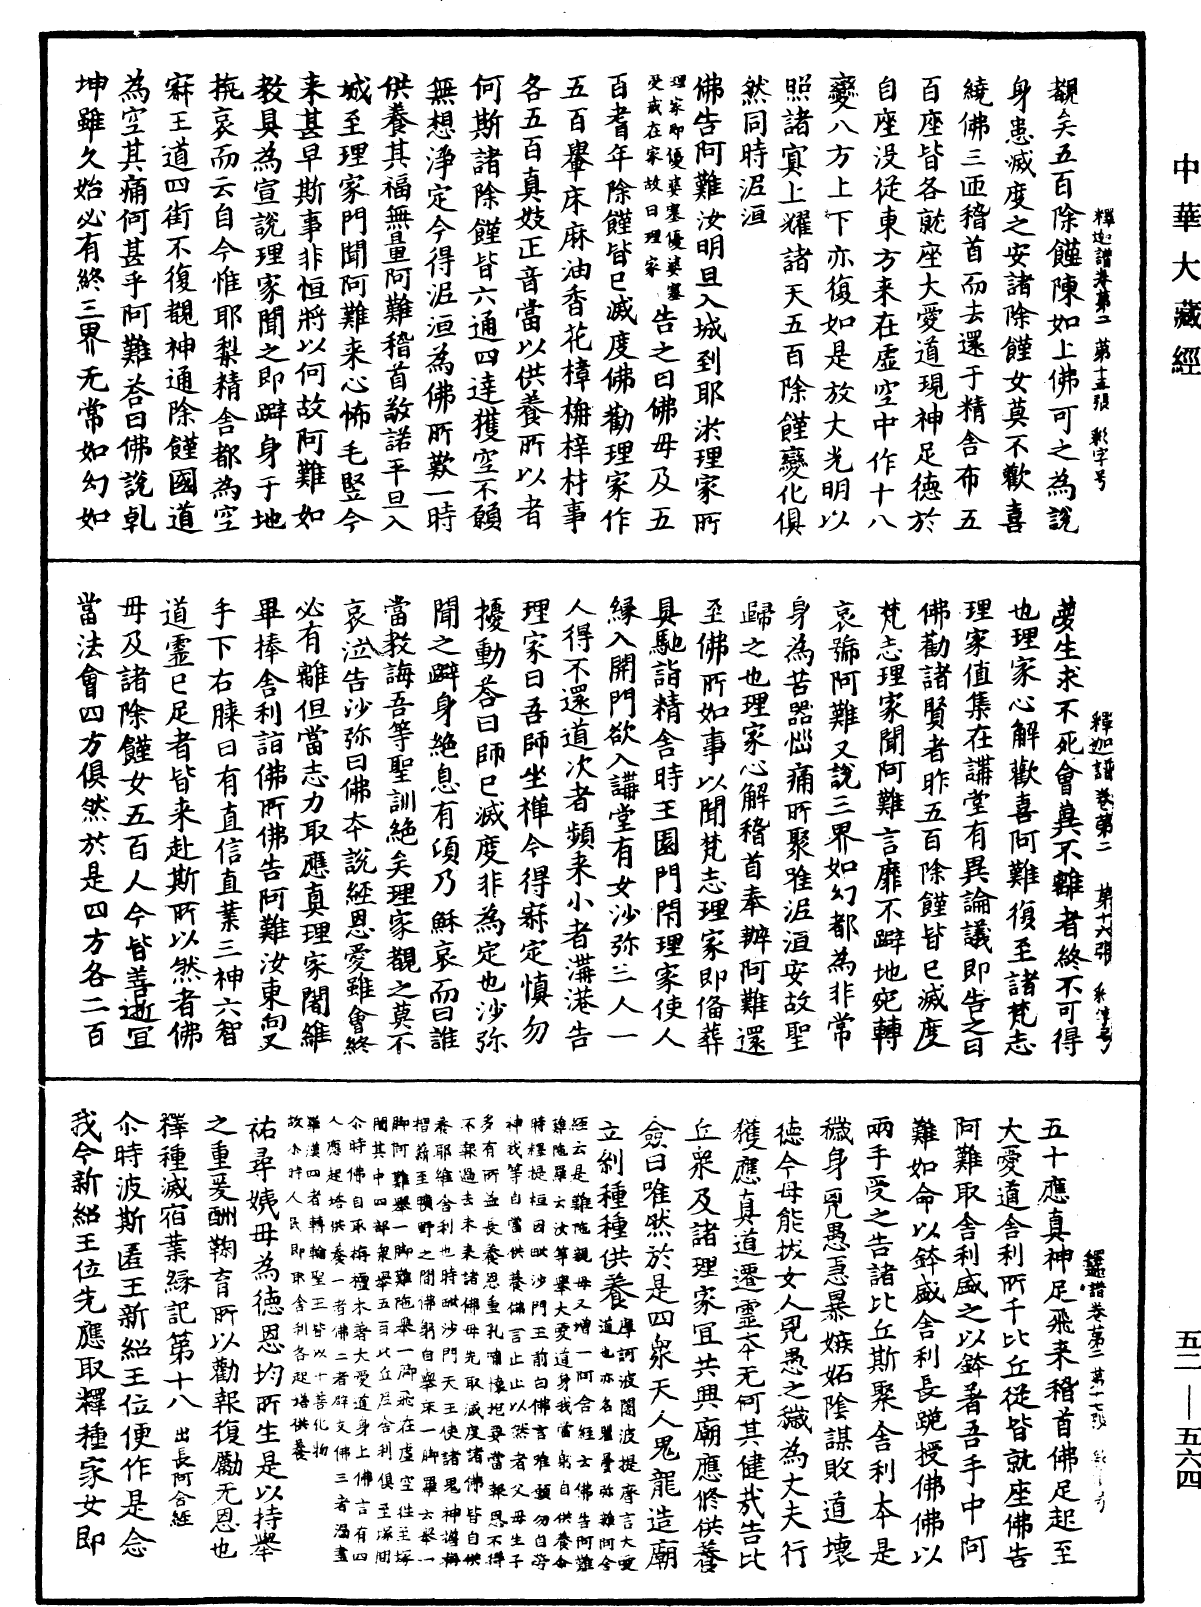 中華大藏經
釋迦譜卷第二 第十五張 彩字号
覩矣五百除饉陳如上佛可之為說
身患滅度之安諸除饉女莫不歡喜
繞佛三匝稽首而去還于精舍布五
百座皆各就座大愛道現神足德於
自座没從東方来在虛空中作十八
變八方上下亦復如是放大光明以
照諸冥上耀諸天五百除饉變化俱
然同時泥洹
佛告阿難汝明旦入城到耶游理家所
理家即優婆塞優婆塞
受戒在家故曰理家
告之曰佛母及五
百耆年除饉皆已滅度佛勸理家作
五百轝床麻油香花樟柟梓材事
各五百真妓正音當以供養所以者
何斯諸除饉皆六通四達獲空不願
無想淨定今得泥洹為佛所歎一時
供養其福無量阿難稽首敬諾平旦入
城至理家門聞阿難来心怖毛竪今
来甚早斯事非恒將以何故阿難如
教具為宣說理家聞之即躃身于地
椀哀而云自今惟耶梨精舍都為空
寂王道四街不復覩神通除饉國道
為空其痛何甚乎阿難荅曰佛說乹
坤雖久始必有終三界无常如幻如
釋迦譜卷第二 第十六張
夢生求不死會冀不離者終不可得
也理家心解歡喜阿難復至諸梵志
理家值集在講堂有異論議即告之曰
佛勸諸賢者昨五百除饉皆已滅度
梵志理家聞阿難言靡不躃地宛轉
哀號阿難又說三界如幻都為非常
身為苦器惱痛所聚唯泥洹安故聖
歸之也理家心解稽首奉辦阿難還
至佛所如事以聞梵志理家即俻葬
具馳詣精舍時王園門閇理家使人
縁入開門欲入講堂有女沙弥三人一
人得不還道次者頻来小者溝港告
理家曰吾師坐禅今得寂定慎勿
擾動荅曰師已滅度非為定也沙弥
聞之躃身絶息有頃乃穌哀而曰誰
當教誨吾等聖訓絶矣理家覩之莫不
哀泣告沙弥曰佛夲說經恩愛雖會終
必有離但當志力取應真理家闍維
畢捧舍利詣佛所佛告阿難汝東向叉
手下右膝曰有直信直業三神六智
道靈已足者皆来赴斯所以然者佛
母及諸除饉女五百人今皆善逝宜
當法會四方俱然於是四方各二百
釋迦譜卷第二 第十七張
五十應真神足飛来稽首佛足起至
大愛道舍利所千比丘從皆就座佛告
阿難取舍利盛之以鉢著吾手中阿
難如命以鉢盛舍利長跪授佛佛以
兩手受之告諸比丘斯聚舍利夲是
穢身兇愚惷暴嫉妬陰謀敗道壞
徳今母能拔女人兇愚之穢為丈夫行
獲應真道遷靈夲无何其健哉告比
丘衆及諸理家宜共興廟應修供養
僉曰唯然於是四衆天人鬼龍造廟
立剎種種供養
摩訶波闍波提齊言大愛
道也亦名瞿曇弥雜阿含
經云是難陁親母又增一阿含經云佛告阿難
難陁羅云汝等舉大愛道身我當躬自供養命
時釋提桓因毗沙門王前白佛言唯願勿自勞
神我等自當供養佛言止止以然者父母生子
多有所益長養恩重乳哺懷抱要當報恩不得
不報過去未来諸佛母先取滅度諸佛皆自供
養耶維舍利也時毗沙門天王使諸鬼神遣栴
檀薪至曠野之閒佛躬自舉床一脚羅云舉一
脚阿難舉一脚難陁舉一脚飛在虛空往至塚
閒其中四部衆舉五百比丘尼舍利俱至塚閒
尒時佛自取栴檀木著大愛道身上佛言有四
人應起塔供養一者佛二者辟支佛三者漏盡
羅漢四者轉輪聖王皆以十善化物
故尒時人民即取舍利各起塔供養
祐尋姨母為德恩均所生是以持舉
之重爰酬鞠育所以勸報復勵无恩也
釋種滅宿業緣記第十八 出長阿含經
尒時波斯匿王新紹王位便作是念
我今新紹王位先應取釋種家女即
五二—五六四